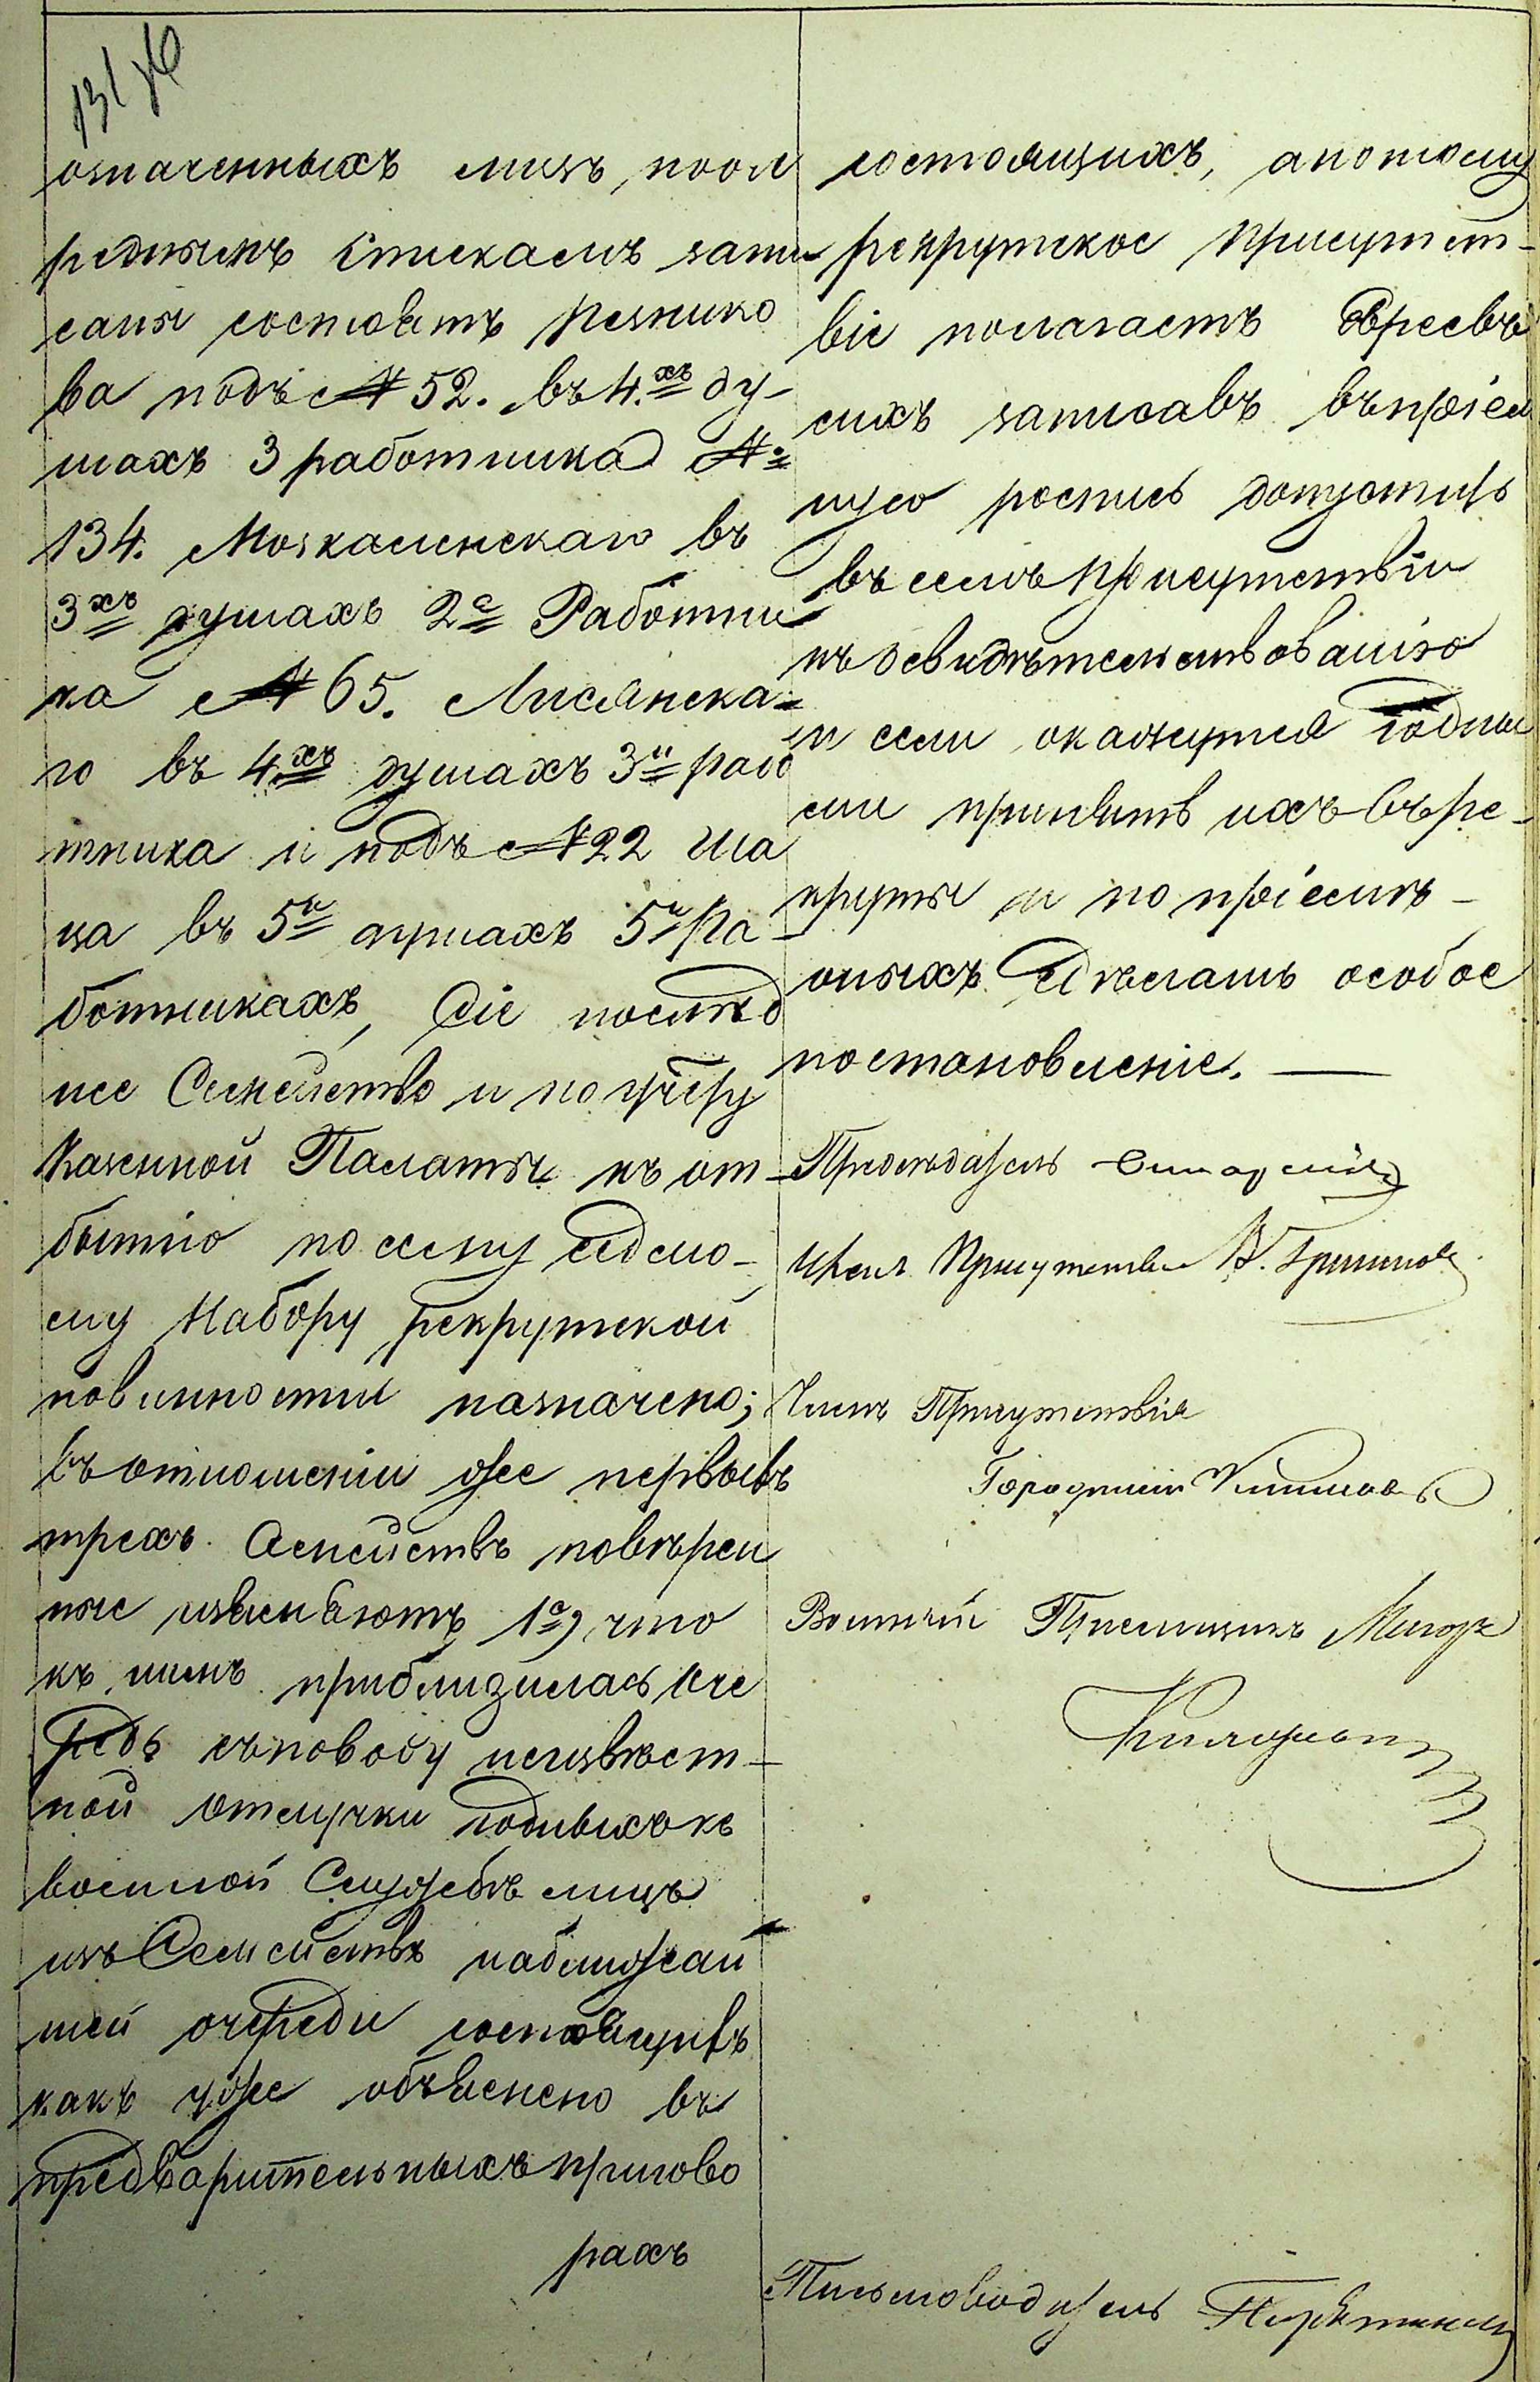 131 об
означенныхъ лицъ, пооче
реднымъ Спискамъ запи
саны состоятъ Резнико
ва подъ № 52. въ 4.хъ ду-
шахъ 3 работника №
134. Мозкаленскаго въ
3хъ душахъ 2а Работни
ка № 65. Лисянска-
го въ 4хъ душахъ 3и рабо
тника и подъ № 22 Ша
ца въ 5и душахъ 5и Ра-
ботникахъ, Сіе послѣд
нее Семейство и по учёту
Казенной Палаты къ от-
бытію по сему седмо-
му Набору рекрутской
повинности назначено;
въ отношеніи же первыхъ
трехъ Семействъ повѣрен
ные изъясняютъ 1е, что
къ нимъ приблизилась оче
редь съповоду неизвѣст-
ной отлучки годныхъ къ
военной Службѣ лицъ
изъ Семействъ наближай
шей очереди состоящихъ
какъ уже объяснено въ
предварительныхъ пригово
рахъ
состоящихъ, апотому
рекрутское Присутст-
віе полагаетъ Евреевъ
сихъ записавъ въ пріем
ную роспись допустить
въ семъ присутствіи
къ освидѣтельствованію
и если окажутся годны
ми принять ихъ въ ре-
круты и по пріемѣ
оныхъ сдѣлать особое
постановленіе.
Предсѣдатель
Членъ Присутствія В.
Членъ Присутствія
Городничій
Военный Пріемщикъ Маіоръ
Письмоводитель